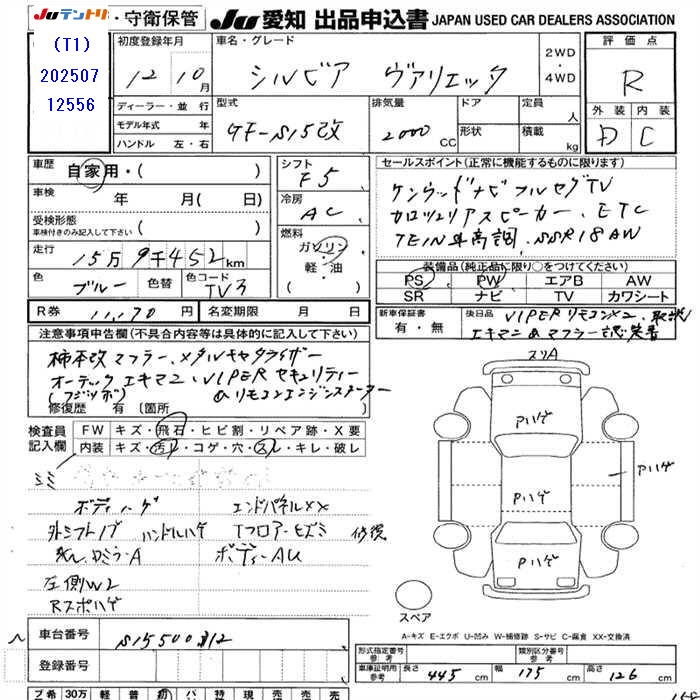 Juテントリ・守衛保管 JU愛知 出品申込書 JAPAN USED CAR DEALERS ASSOCIATION
(T1)
202507
12556
初度登録年月 12 10月
車名・グレード シルビア ヴァリエッタ
2WD・4WD
評価点 R
外装 D 内装 C
ディーラー・並行
モデル年式 年
ハンドル 左・右
型式 GF-S15改
排気量 2000 CC
ドア
形状
定員 人
積載 kg
車歴 自家用・( )
車検 年 月( 日)
受検形態
車検付きのみ記入して下さい ( )
走行 15万9千452km
色 ブルー 色替 色コード TV3
シフト F5
冷房 AC
燃料 ガソリン・軽・油
セールスポイント(正常に機能するものに限ります)
ケンウッドナビフルセグTV
カロッツェリアスピーカー、ETC
TEIN車高調、SSR18AW
装備品(純正品に限り○をつけてください)
PS PW エアB AW
SR ナビ TV カワシート
R券 11,170円 名変期限 月 日
新車保証書 有・無
後日品 VIPERリモコン×2、取説
エキマニ&マフラー認定書
注意事項申告欄(不具合内容等は具体的に記入して下さい)
柿本改マフラー、メタルキャタライザー
オーテックエキマニ、VIPERセキュリティー
(フジツボ) &リモコンエンジンスターター
修復歴 有 〔箇所
検査員記入欄
FW キズ・飛石・ヒビ割・リペア跡・X要
内装 キズ・汚レ・コゲ・穴・スレ・キレ・破レ
ボディーハゲ エンドパネルXX
外シフトノブ ハンドルハゲ Tフロアーヒズミ 修復
ボディーAU
左側W2
Rスポハゲ
スリA
Pハゲ
Pハゲ
Aハゲ
Pハゲ
スペア
A-キズ E-エクボ U-凹み W-補修跡 S-サビ C-腐食 XX-交換済
車台番号 S15500312
登録番号
形式指定番号 参考
類別区分番号 参考
車庫証明用 参考 長さ 445 cm 幅 175 cm 高さ 126 cm